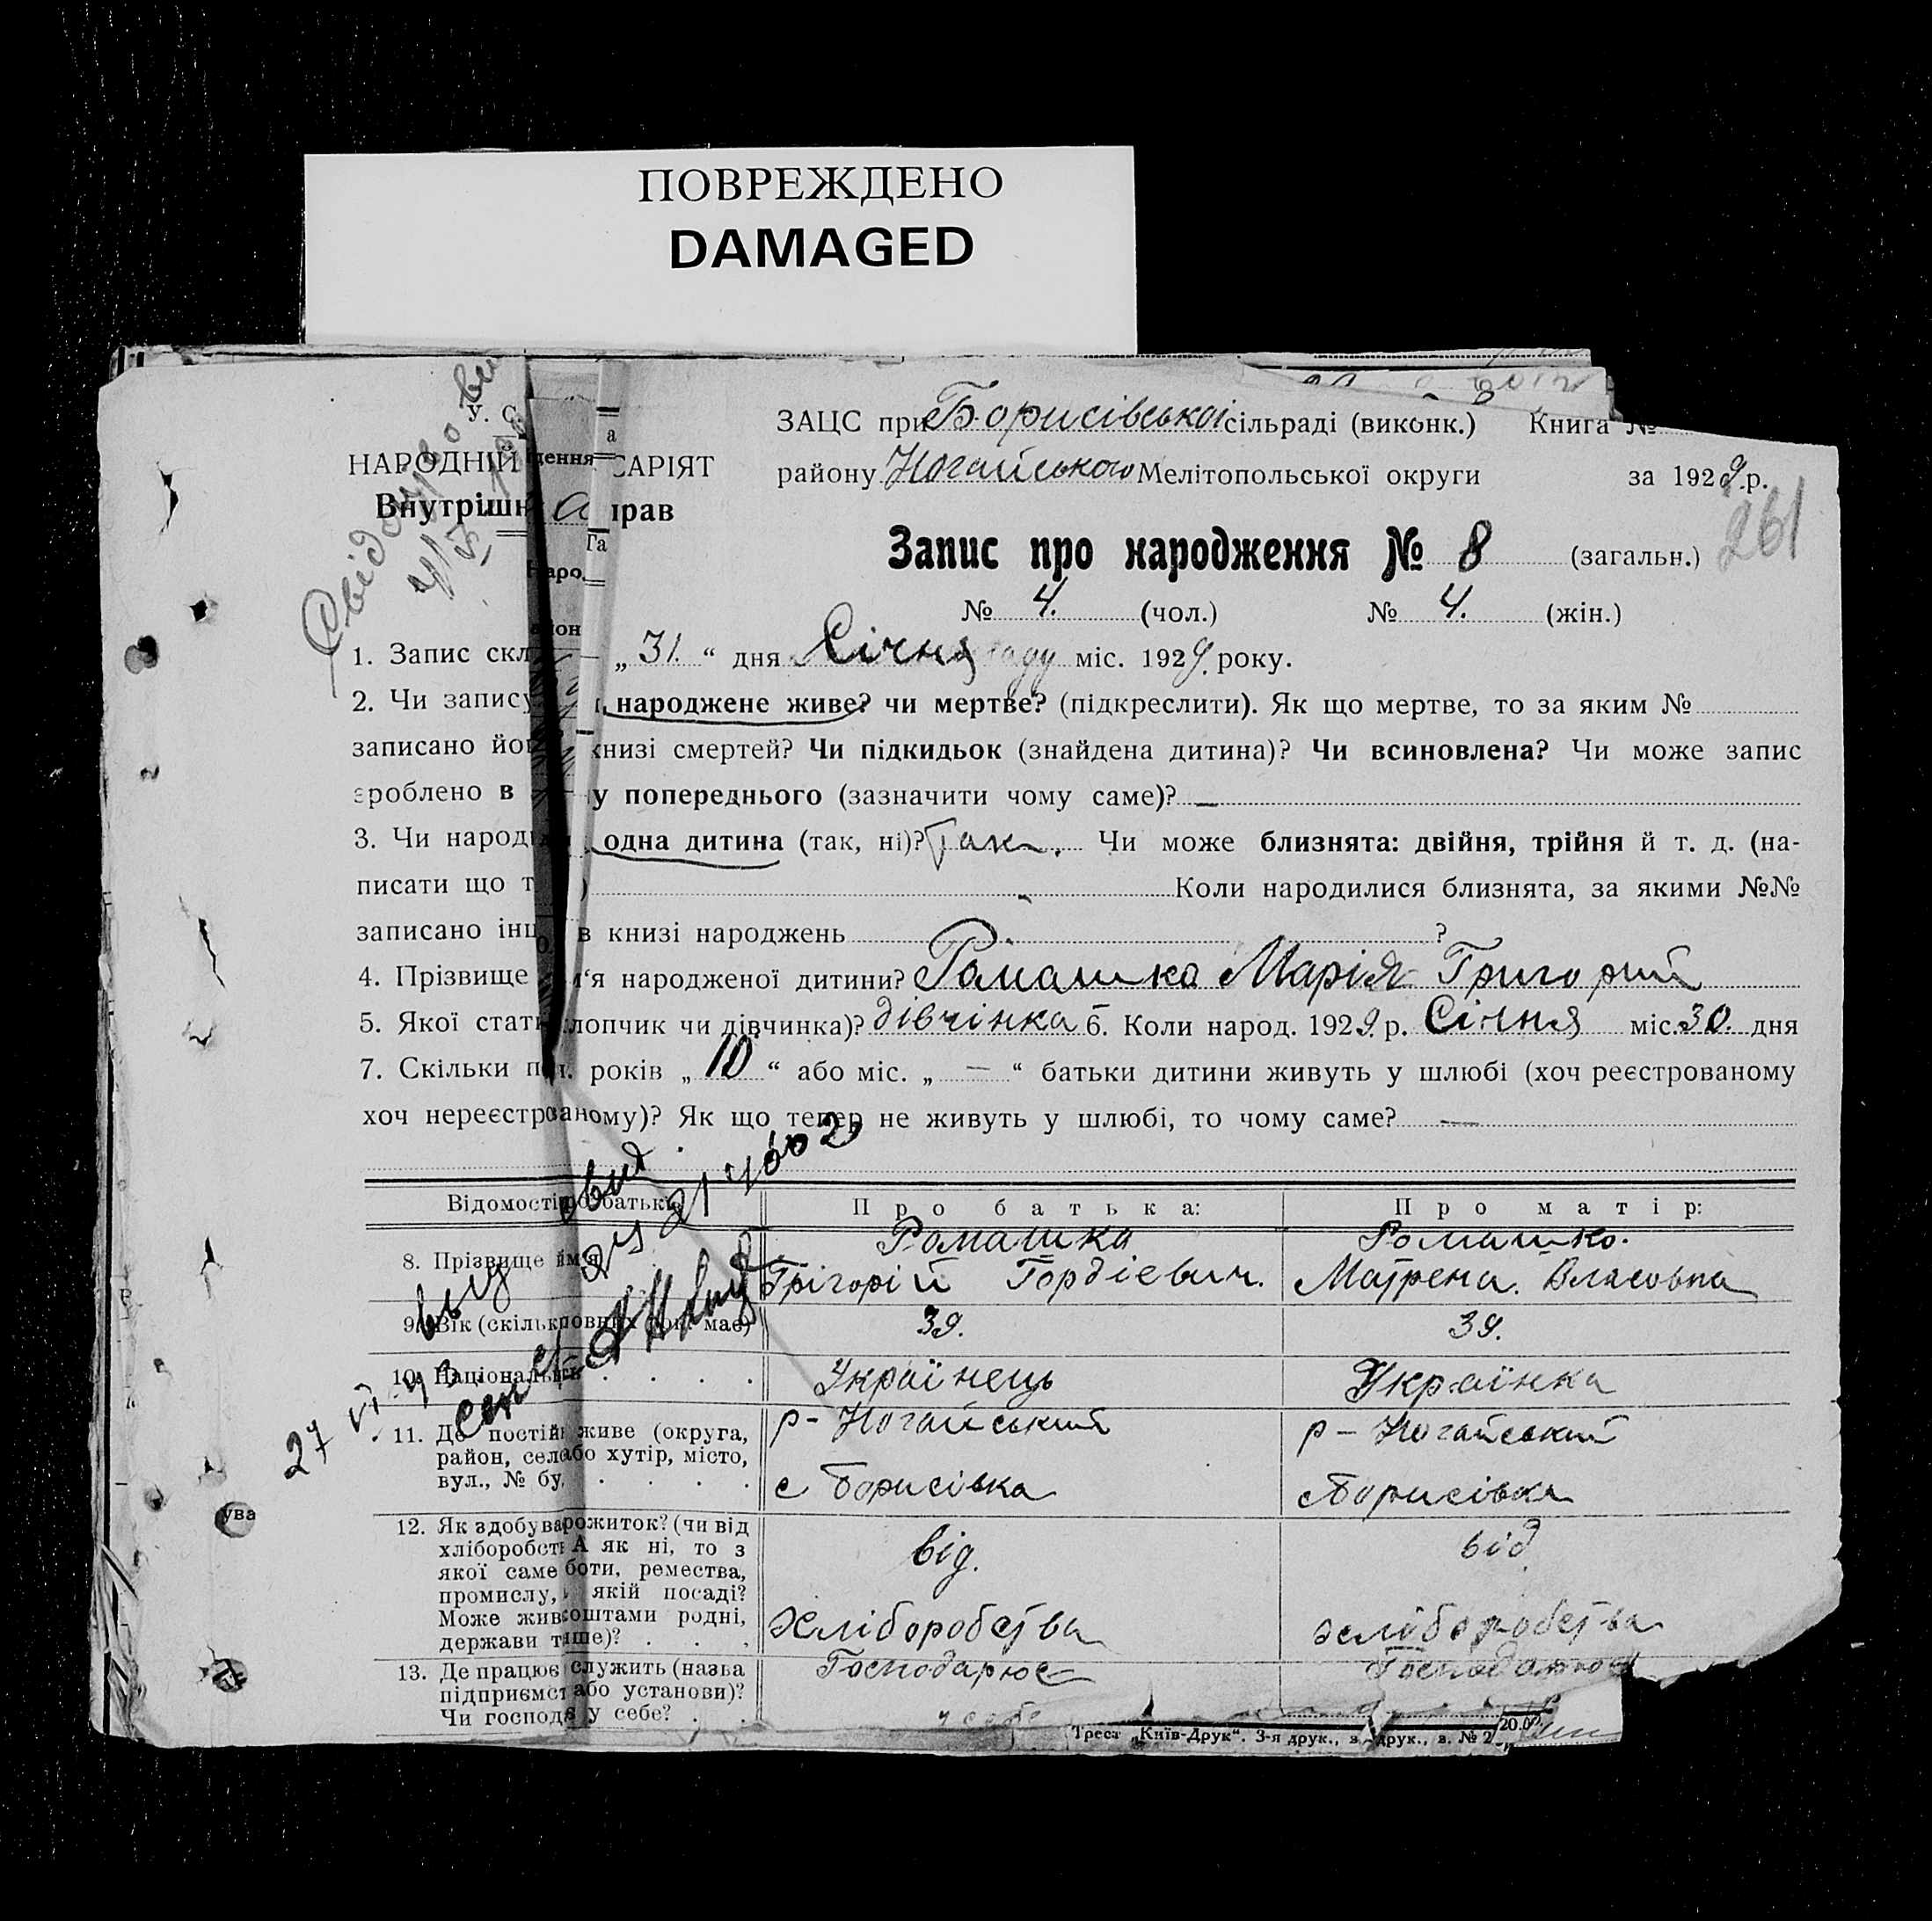 ПОВРЕЖДЕНО
DAMAGED
У. С.
НАРОДНІЙ САРІЯТ
Внутрішн прав
ЗАЦС при Борисівської сільраді (виконк.) Книга №
району Ногайського Мелітопольської округи за 1929.р.
261
Запис про народження № 8 (загальн.)
№ 4. (чол.) № 4. (жін.)
1. Запис скл „31.“ дня Січня міс. 1929. року.
2. Чи запису народжене живе? чи мертве? (підкреслити). Як що мертве, то за яким №
записано йог книзі смертей? Чи підкидьок (знайдена дитина)? Чи всиновлена? Чи може запис
зроблено в у попереднього (зазначити чому саме)? —
3. Чи народи одна дитина (так, ні)? Так. Чи може близнята: двійня, трійня й т. д. (на-
писати що т ) Коли народилися близнята, за якими №№
записано інш в книзі народжень ?
4. Прізвище м’я народженої дитини? Ромашка Марія Григорий
5. Якої стати лопчик чи дівчинка)? дівчінка 6. Коли народ. 1929. р. Січня міс. 30. дня
7. Скільки п років „10“ або міс. „—“ батьки дитини живуть у шлюбі (хоч реєстрованому
хоч нереєстрованому)? Як що тепер не живуть у шлюбі, то чому саме? —
Відомості батьк Про батька: Про матір:
8. Прізвище йм’я Ромашка Ромашко.
Грігорій Гордіевич. Матрена. Власовна
9. Вік (скільки повних рок. має) 39. 39.
10. Національність Українець Українка
11. Де постій живе (округа, р - Ногайський р - Ногайський
район, село або хутір, місто,
вул., № бу. с Борисівка с Борисівка
12. Як здобува прожиток? (чи від від. від
хліборобст А як ні, то з
якої саме боти, ремества,
промислу, якій посаді?
Може жив коштами родні, хліборобства хліборобства
держави т ше)?
13. Де працює служить (назва Господарює Господарює
підприємст або установи)?
Чи господа у себе? у себе
Трест „Київ-Друк“. 3-я друк., з. друк., в. № 2